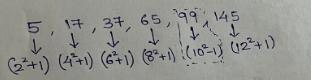 5 , 17 , 37 , 65 , 99 , 145
↓ ↓ ↓ ↓ ↓ ↓
(2²+1) (4²+1) (6²+1) (8²+1) (10²-1) (12²+1)